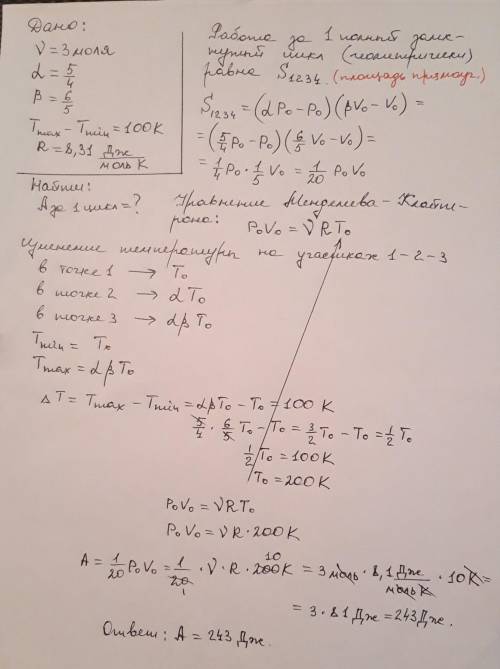 Дано:
ν = 3 моля
α = 5/4
β = 6/5
Tmax − Tmin = 100K
R = 8,31 Дж/моль K
Найти:
A за 1 цикл = ?
Работа за 1 полный замк-
нутый цикл (геометрически)
равна S1234. (площадь прямоуг.)
S1234 = (αP₀ − P₀)(βV₀ − V₀) =
= (5/4 P₀ − P₀)(6/5 V₀ − V₀) =
= 1/4 P₀ · 1/5 V₀ = 1/20 P₀V₀
Уравнение Менделеева-Клапей-
рона: P₀V₀ = νRT₀
Изменение температуры на участках 1-2-3
в точке 1 → T₀
в точке 2 → αT₀
в точке 3 → αβT₀
Tmin = T₀
Tmax = αβT₀
ΔT = Tmax − Tmin = αβT₀ − T₀ = 100K
5/4 · 6/5 T₀ − T₀ = 3/2 T₀ − T₀ = 1/2 T₀
1/2 T₀ = 100K
T₀ = 200K
P₀V₀ = νRT₀
P₀V₀ = νR·200K
A = 1/20 P₀V₀ = 1/20 · ν · R · 200K 10 = 3 моль · 8,1 Дж/моль K · 10K =
1
= 3 · 81 Дж = 243 Дж.
Ответ: A = 243 Дж.